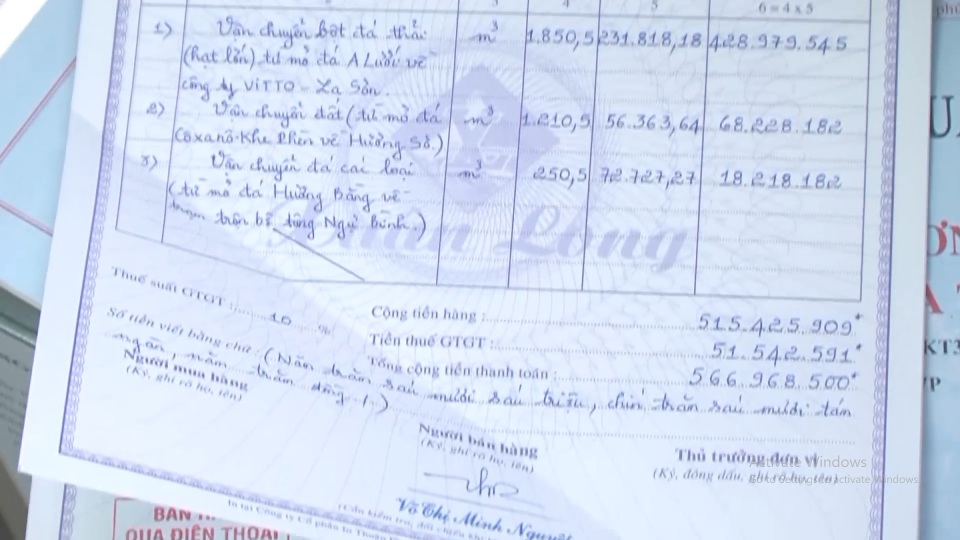 3 4 5 6 = 4 x 5
1) Vận chuyển bột đá thải m³ 1.850,5 231.818,18 428.979.545
(hạt lớn) từ mỏ đá A Lưới về
công ty VITTO - La Sơn.
2) Vận chuyển đất (từ mỏ đá m³ 1.210,5 56.363,64 68.228.182
Coxano-Khe Phèn về Hương Sơ.)
3) Vận chuyển đá các loại m³ 250,5 72.727,27 18.218.182
(từ mỏ đá Hương Bằng về
trạm trộn bê tông Ngự Bình.)
Long
Cộng tiền hàng : 515.425.909*
Thuế suất GTGT : 10 % Tiền thuế GTGT : 51.542.591*
Tổng cộng tiền thanh toán : 566.968.500*
Số tiền viết bằng chữ : (Năm trăm sáu mươi sáu triệu, chín trăm sáu mươi tám
ngàn, năm trăm đồng ./.)
Người mua hàng
(Ký, ghi rõ họ, tên)
Người bán hàng
(Ký, ghi rõ họ, tên)
Thủ trưởng đơn vị
(Ký, đóng dấu, ghi rõ họ, tên)
Võ Thị Minh Nguyệt
Activate Windows
Go to Settings to activate Windows.
BAN
QUA ĐIỆN THOẠI
KT3